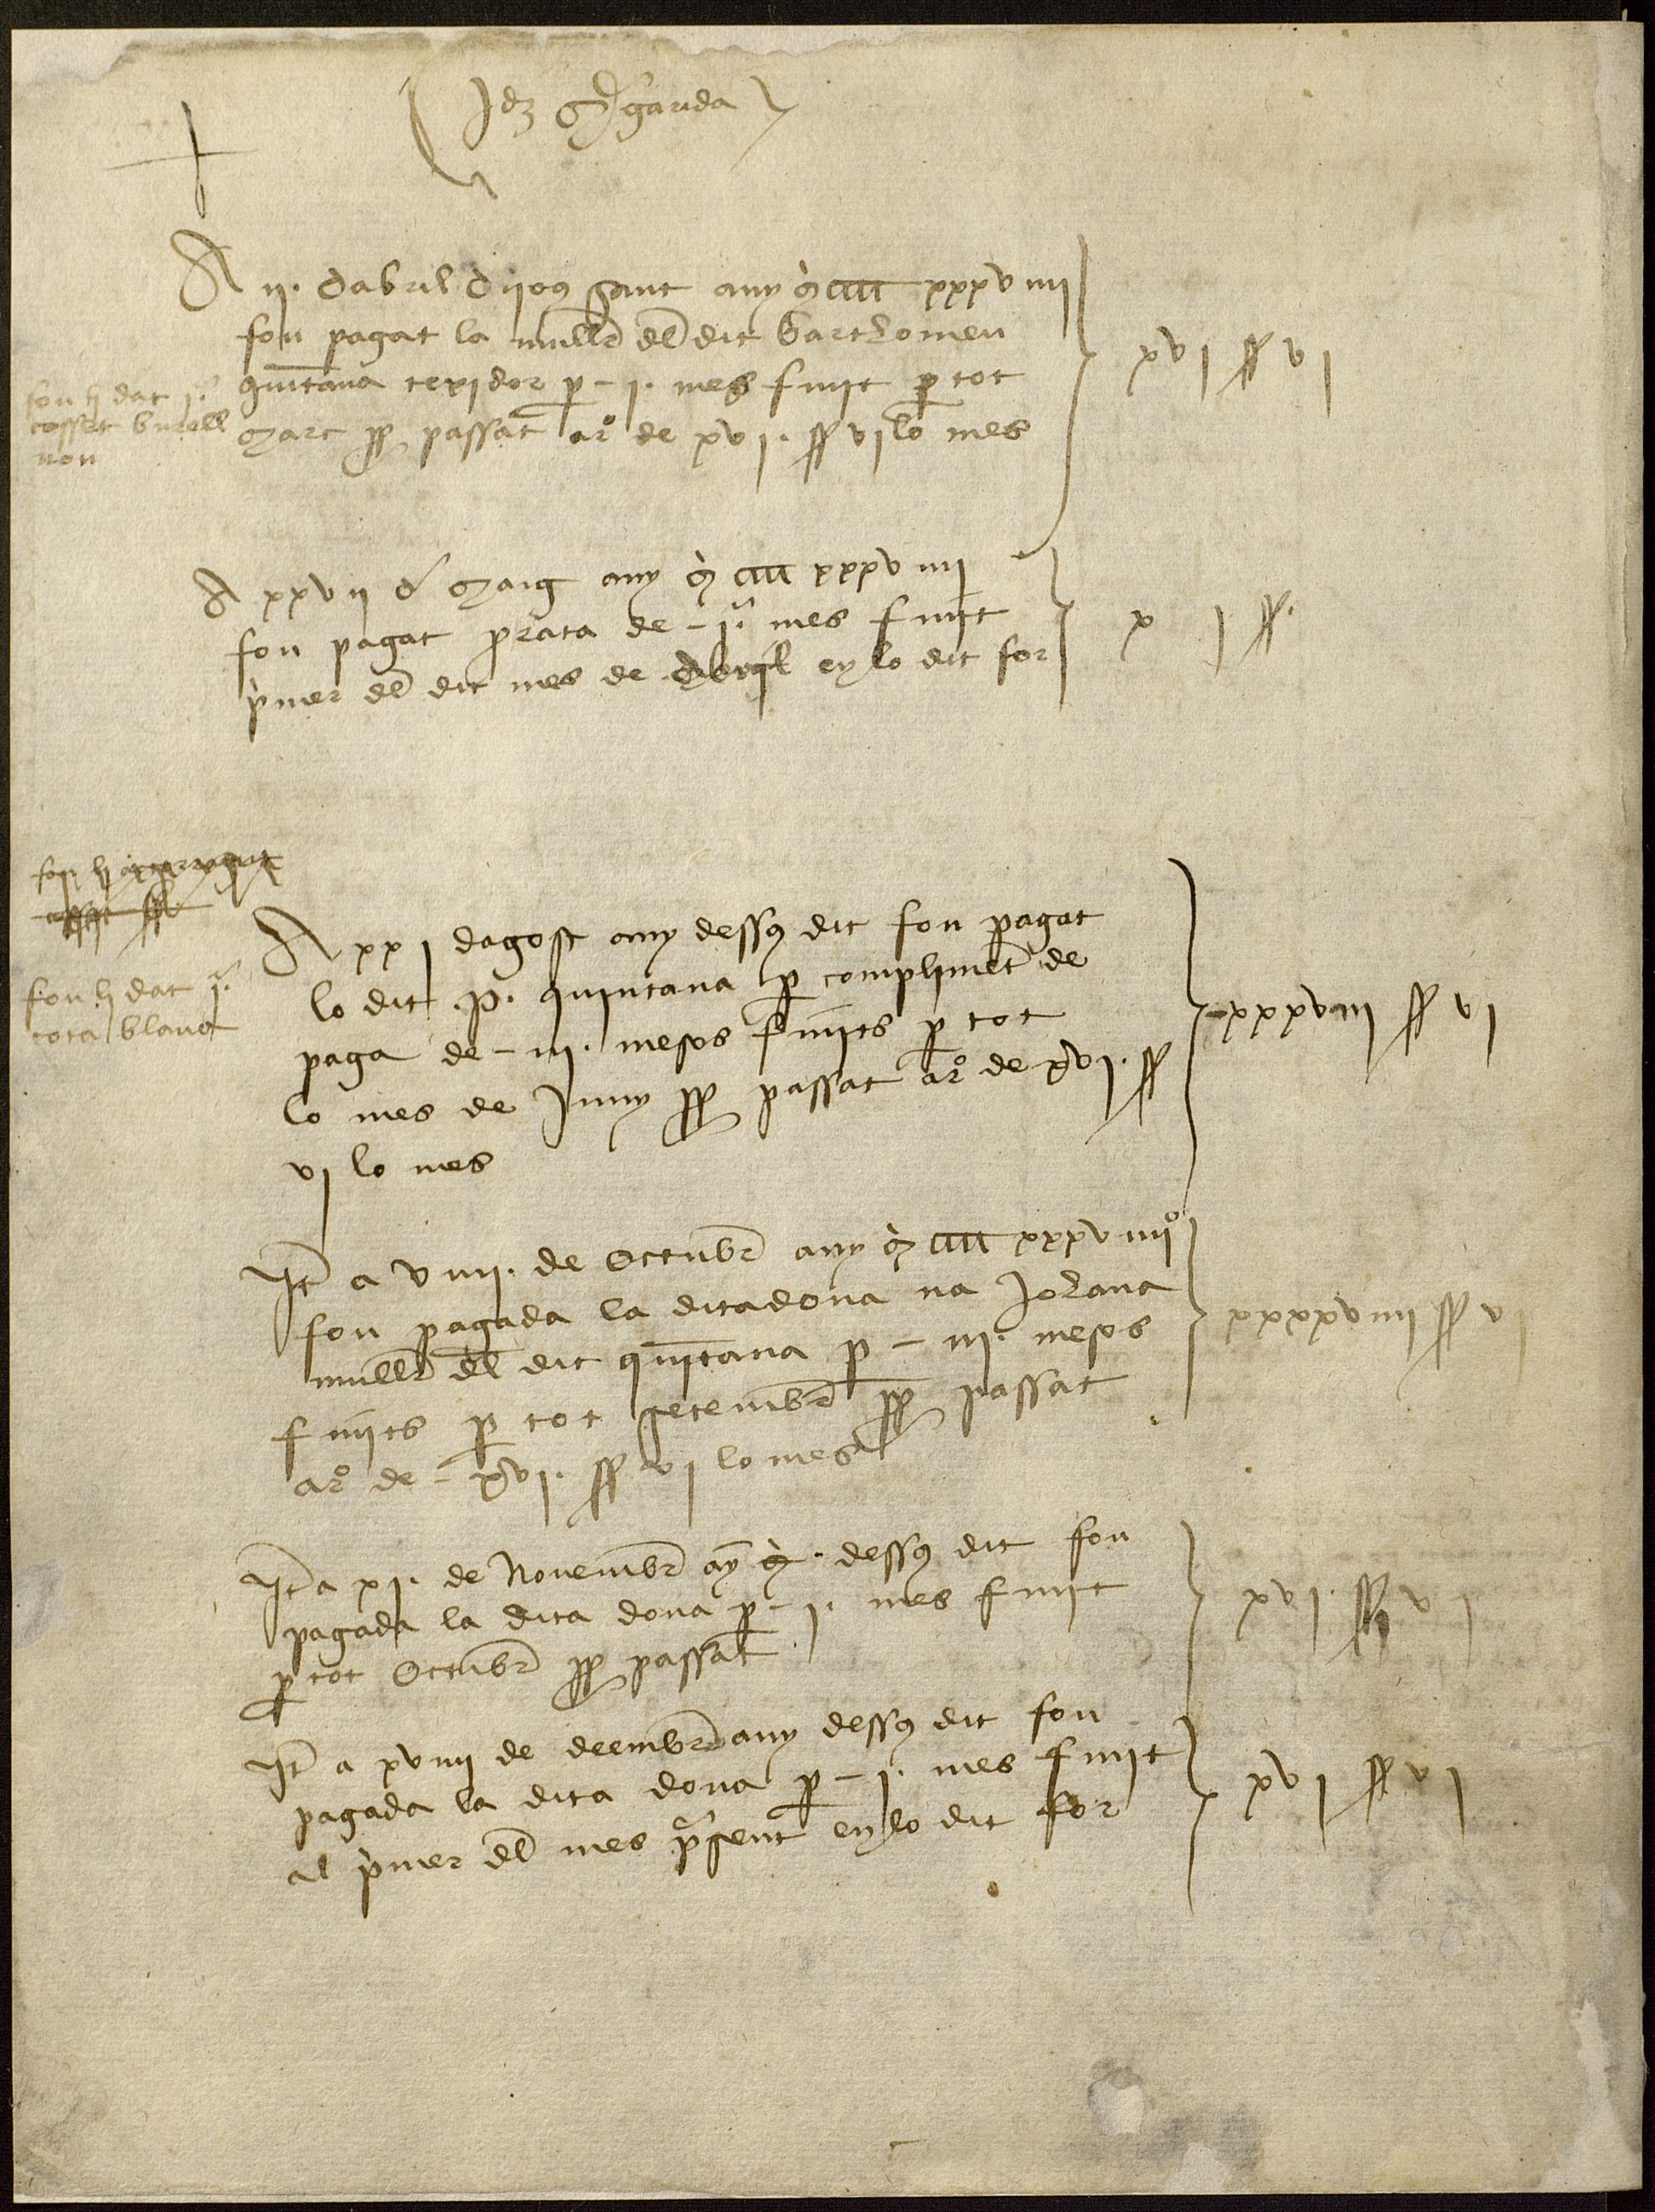 Jdz Mgarida
A ij. dabril dijo9 sant any M cccc xxxviiij
fou pagat la mullr dl dit bartholomeu
quitana texidor p – j. mes finit p tot
Març pp passat ar° de xvj. ss vj lo mes
xvj ss vj
fou li dat j.ª
cosset burell
nou
A xxvij d Maig any M cccc xxxviiij
fou pagat prata de – j.ª mes finit
pmer dl dit mes de abril en lo dit for
x j ss.
fou li
fou li dat j.ª
cota blaua
A xxj dagost any dess9 dit fou pagat
lo dit .p. quintana p complimet de
paga de – iij. mesos finits p tot
lo mes de Juny pp passat ar° de xvj. ss
vj lo mes
xxxviiij ss vj
Jt a viiij. de Octubr any M cccc xxxviiij°
fou pagada la dita dona na Johana
mullr dl dit quitana p – iij. mesos
finits p tot setembr pp passat
ar° de – xvj. ss vj lo mes
xxxxviiij ss vj
Jt a xj. de Nouembr ay M. dess9 dit fou
pagada la dita dona p – j. mes finit
p tot Octubr pp passat
xvj ss vj
Jt a xviiij de deembr any dess9 dit fou
pagada la dita dona p – j. mes finit
al pmer dl mes psent en lo dit for
xvj ss vj